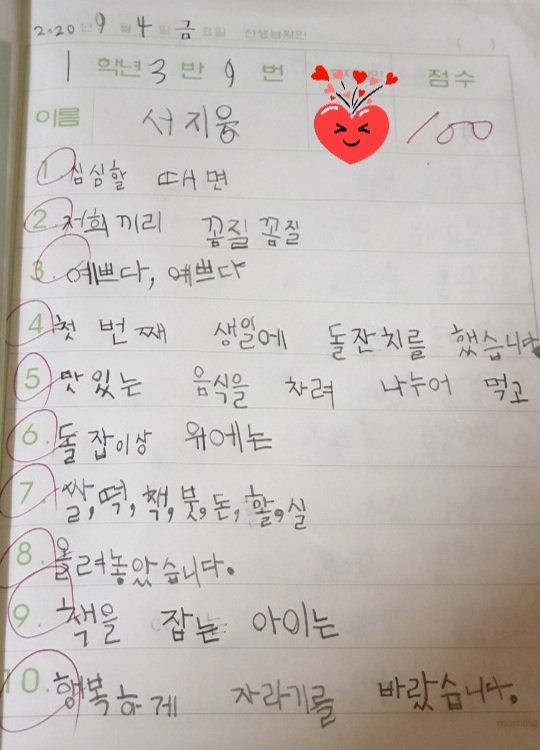 2020년 9월 4일 금요일 선생님확인 ( )
1 학년 3 반 9 번 점수
이름 서지웅 100
1. 심심할 때면
2. 저희끼리 꼼질꼼질
3. 예쁘다, 예쁘다
4. 첫 번째 생일에 돌잔치를 했습니다
5. 맛있는 음식을 차려 나누어 먹고
6. 돌잡이상 위에는
7. 쌀, 떡, 책, 붓, 돈, 활, 실
8. 올려놓았습니다.
9. 책을 잡는 아이는
10. 행복하게 자라기를 바랐습니다.
morning